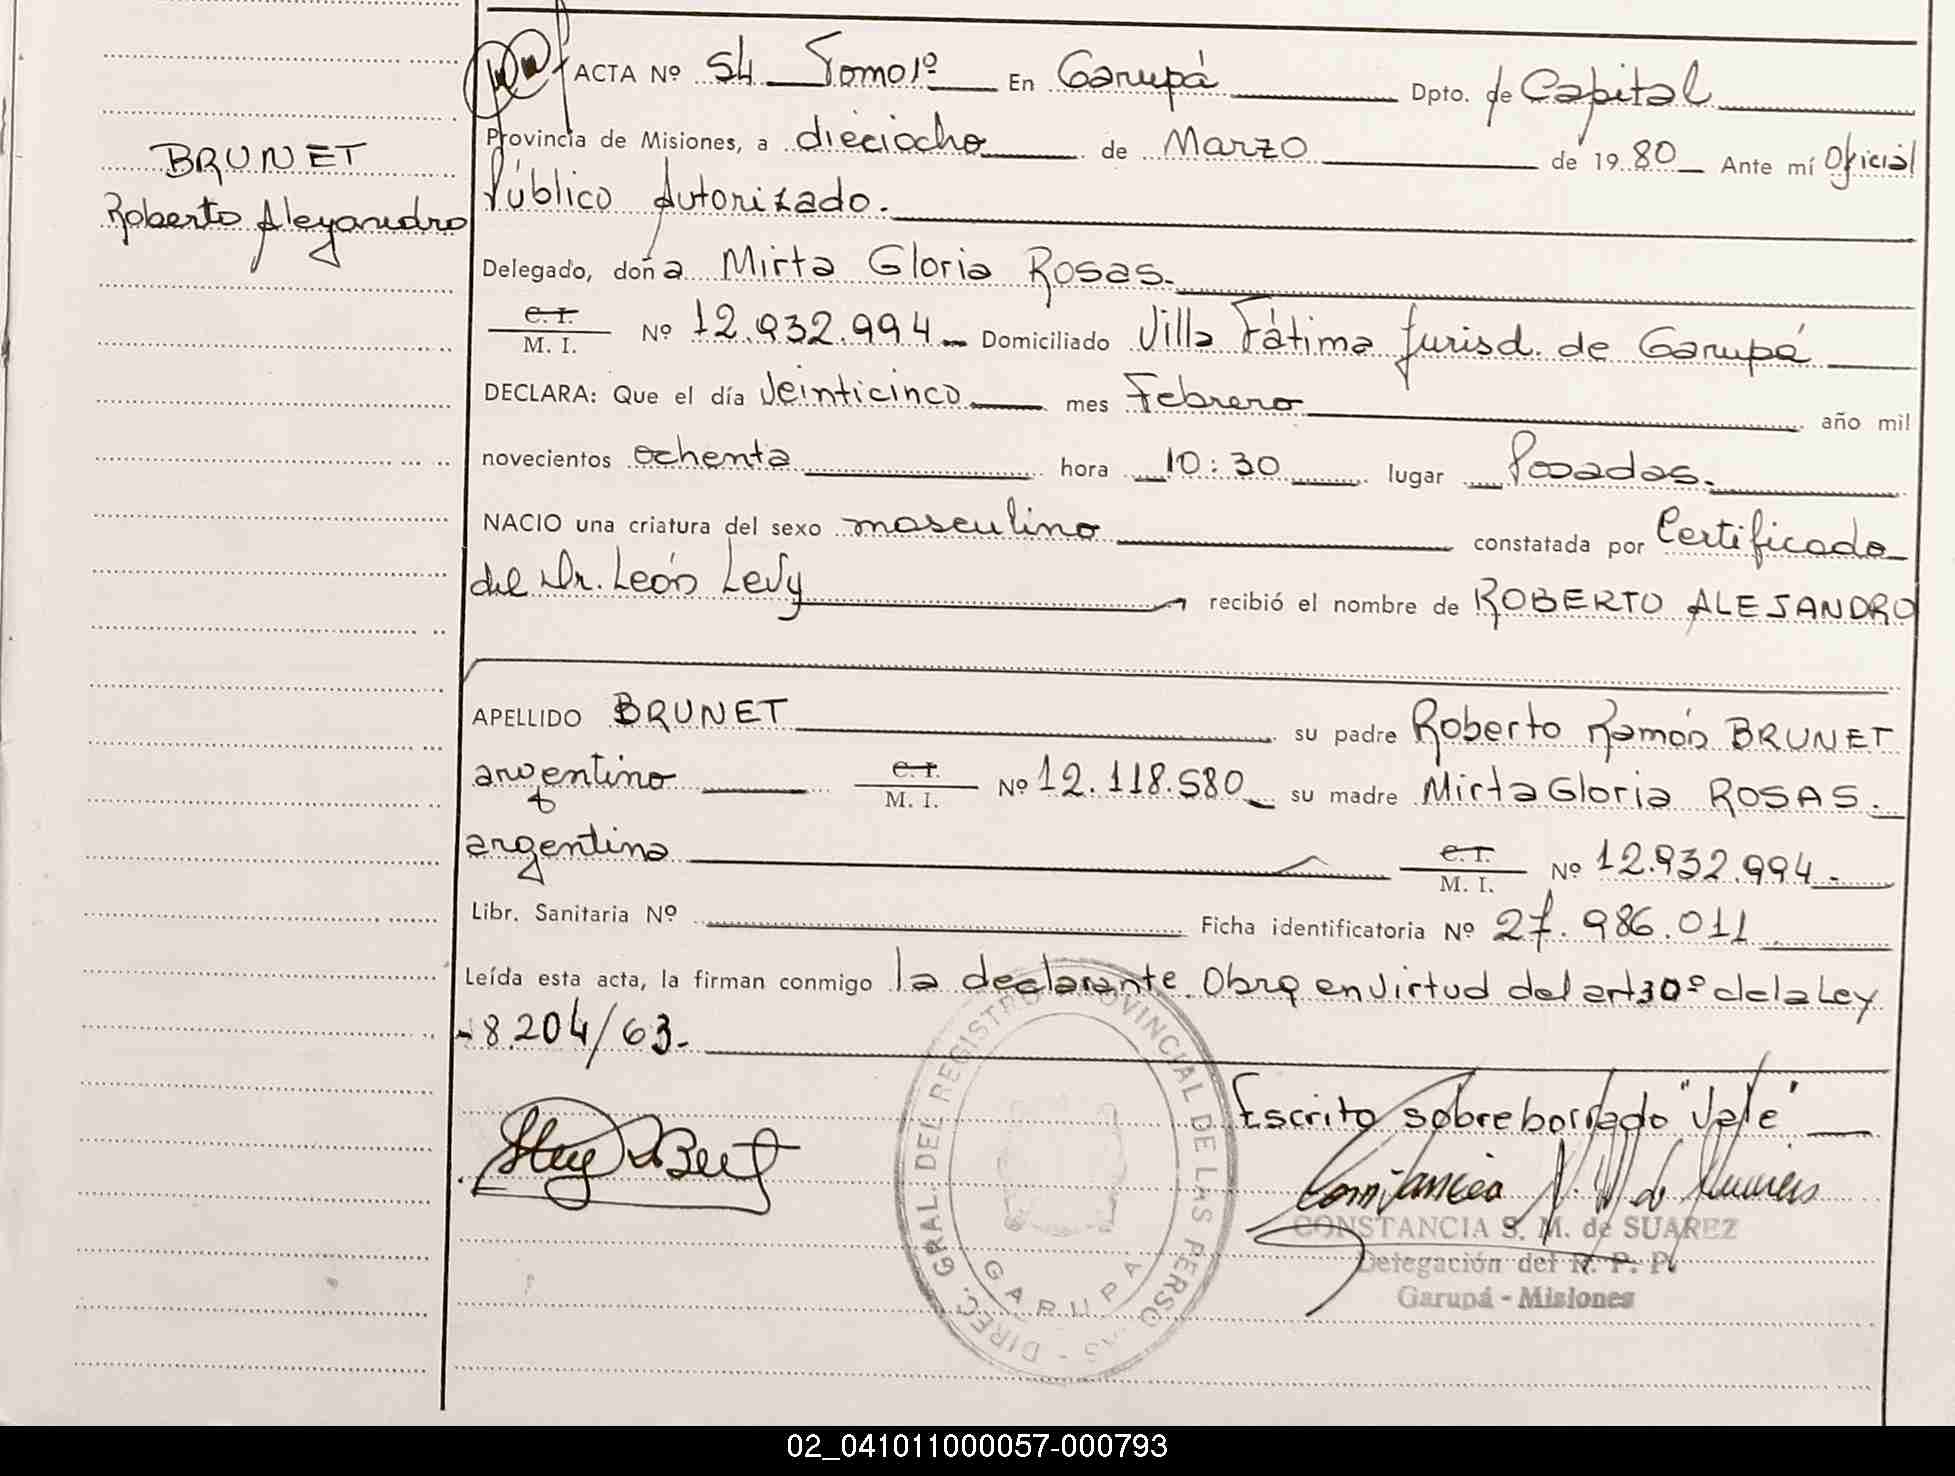 ACTA Nº 54 Tomo 1º En Garupá Dpto. de Capital
Provincia de Misiones, a dieciocho de Marzo de 19 80 Ante mí Oficial
Público Autorizado.
BRUNET
Roberto Alejandro
Delegado, doña Mirta Gloria Rosas.
C. I.
M. I. Nº 12.932.994 Domiciliado Villa Fátima Jurisd. de Garupá
DECLARA: Que el día Veinticinco mes Febrero año mil
novecientos ochenta hora 10:30 lugar Posadas.
NACIO una criatura del sexo masculino constatada por Certificado
del Dr. León Levy recibió el nombre de ROBERTO ALEJANDRO
APELLIDO BRUNET su padre Roberto Ramón BRUNET
argentino C. I.
M. I. Nº 12.118.580 su madre Mirta Gloria ROSAS.
argentina C. I.
M. I. Nº 12.932.994.
Libr. Sanitaria Nº Ficha identificatoria Nº 27.986.011
Leída esta acta, la firman conmigo la declarante. Obra en virtud del art 30º de la Ley
-8.204/63.-
Escrito sobre borrado "Vale".
DIREC. GRAL. DEL REGISTRO PROVINCIAL DE LAS PERSONAS -
GARUPA
CONSTANCIA S. M. de SUAREZ
Delegación del R. P. P.
Garupá - Misiones
02_041011000057-000793